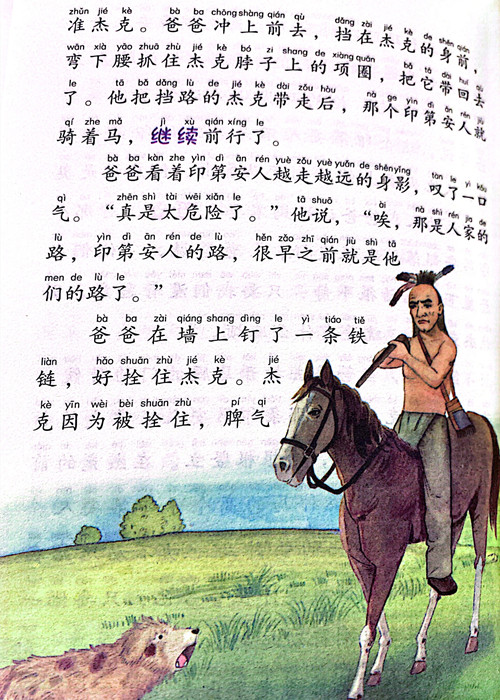 zhǔn jié kè bà ba chōng shàng qián qù dǎng zài jié kè de shēn qián
准杰克。爸爸冲上前去，挡在杰克的身前，
wān xià yāo zhuā zhù jié kè bó zi shang de xiàng quān bǎ tā dài huí qù
弯下腰抓住杰克脖子上的项圈，把它带回去
le tā bǎ dǎng lù de jié kè dài zǒu hòu nà ge yìn dì ān rén jiù
了。他把挡路的杰克带走后，那个印第安人就
qí zhe mǎ jì xù qián xíng le
骑着马，继续前行了。
bà ba kàn zhe yìn dì ān rén yuè zǒu yuè yuǎn de shēn yǐng tàn le yì kǒu
爸爸看着印第安人越走越远的身影，叹了一口
qì zhēn shì tài wēi xiǎn le tā shuō ài nà shì rén jia de
气。“真是太危险了。”他说，“唉，那是人家的
lù yìn dì ān rén de lù hěn zǎo zhī qián jiù shì tā
路，印第安人的路，很早之前就是他
men de lù le
们的路了。”
bà ba zài qiáng shang dìng le yì tiáo tiě
爸爸在墙上钉了一条铁
liàn hǎo shuān zhù jié kè jié
链，好拴住杰克。杰
kè yīn wèi bèi shuān zhù pí qi
克因为被拴住，脾气